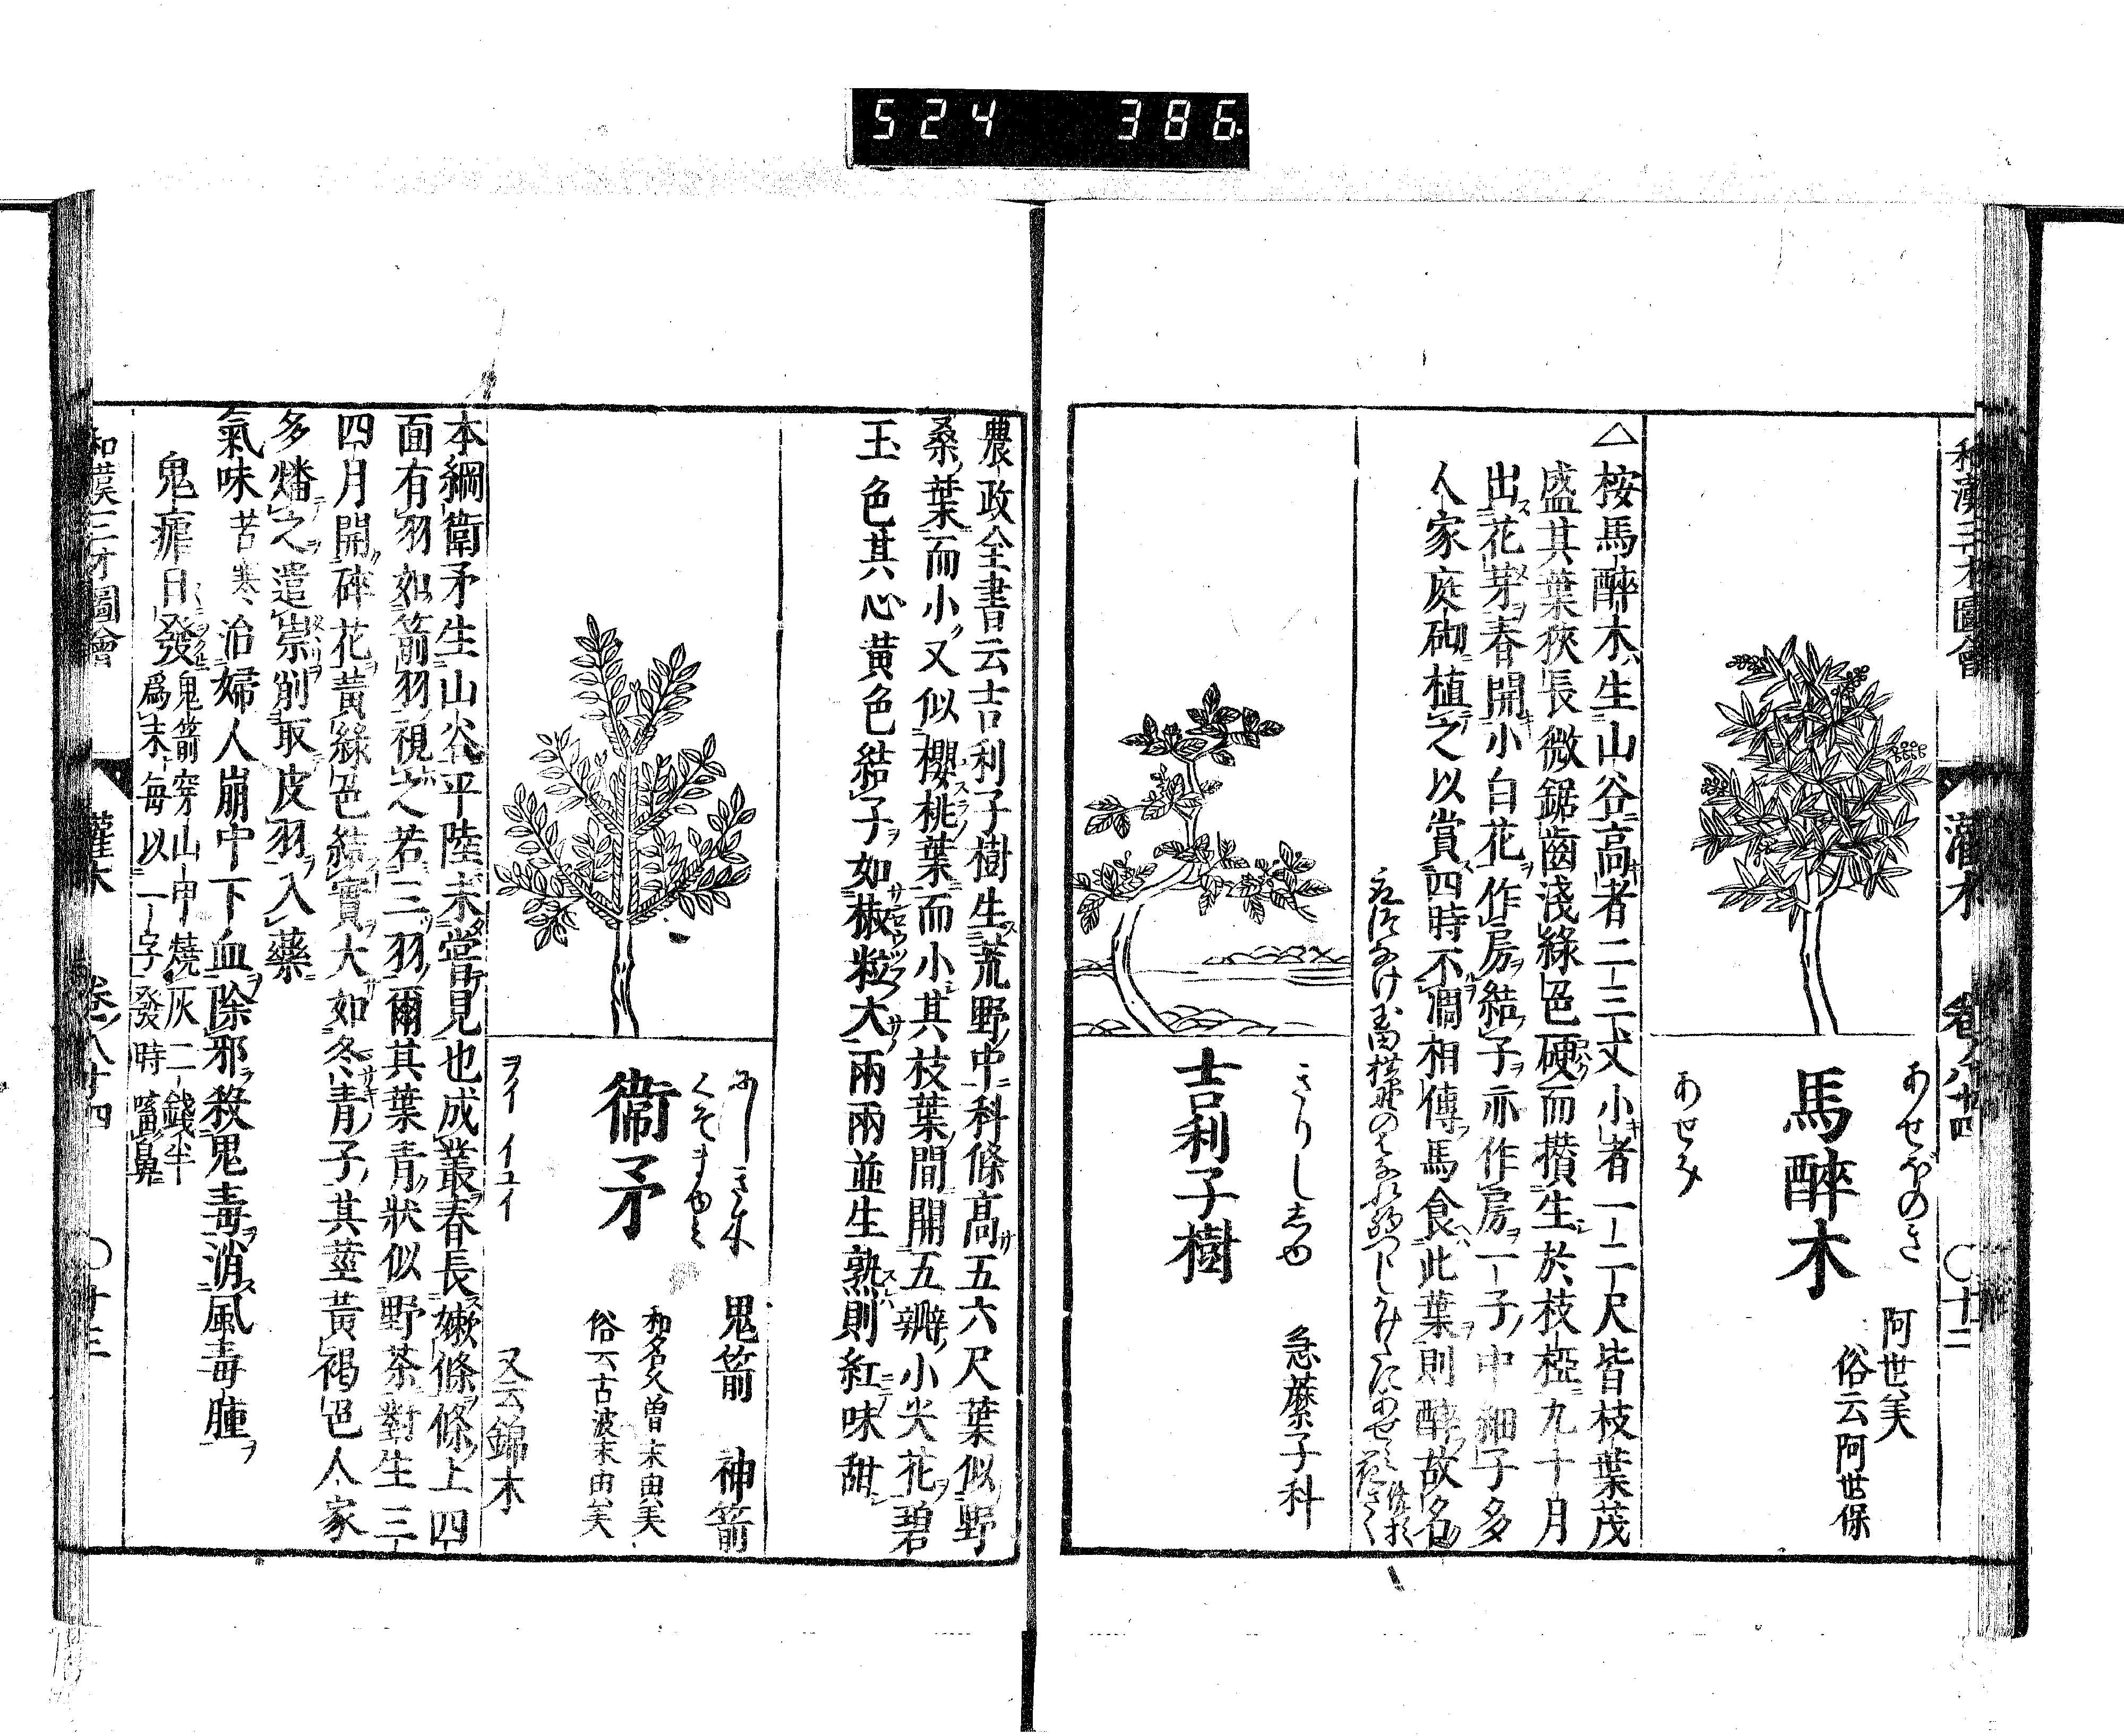 524 386
和漢三才圖會 灌木 卷ノ八十四 〇廿二
あせぼのき
あせみ
馬醉木
阿世美
俗云阿世保
△桉馬醉木生山谷高者二三丈小者一二尺皆枝葉茂
盛其葉狹長微鋸齒淺綠色硬而攅生於枝椏九十月
出花芽春開小白花作房結子亦作房一子中細子多
人家庭砌植之以賞四時不凋相傳馬食此葉則醉故名
きりししゆ
吉利子樹
急蘼子科
農政全書云吉利子樹生荒野中科條高五六尺葉似野
桑葉而小又似櫻桃葉而小其枝葉間開五瓣小尖花碧
玉色其心黃色結子如椒粒大兩兩並生熟則紅味甜
にしき木
くそまゆみ
衞矛
ヲイ イユイ
鬼箭 神箭
和名久曽末由美
俗云古波末由美
又云錦木
本綱衞矛生山谷平陸未嘗見也成叢春長嫩條條上四
面有羽如箭羽視之若三羽爾其葉青狀似野茶對生三
四月開碎花黃綠色結實大如冬青子其莖黃褐色人家
多燔之遣祟削取皮羽入藥
氣味苦寒治婦人崩中下血除邪殺鬼毒消風毒腫
鬼瘧日發鬼箭穿山甲燒灰二錢半
爲末每以一字發時㗜鼻
和漢三才圖會 灌木 卷ノ八十四 〇廿三